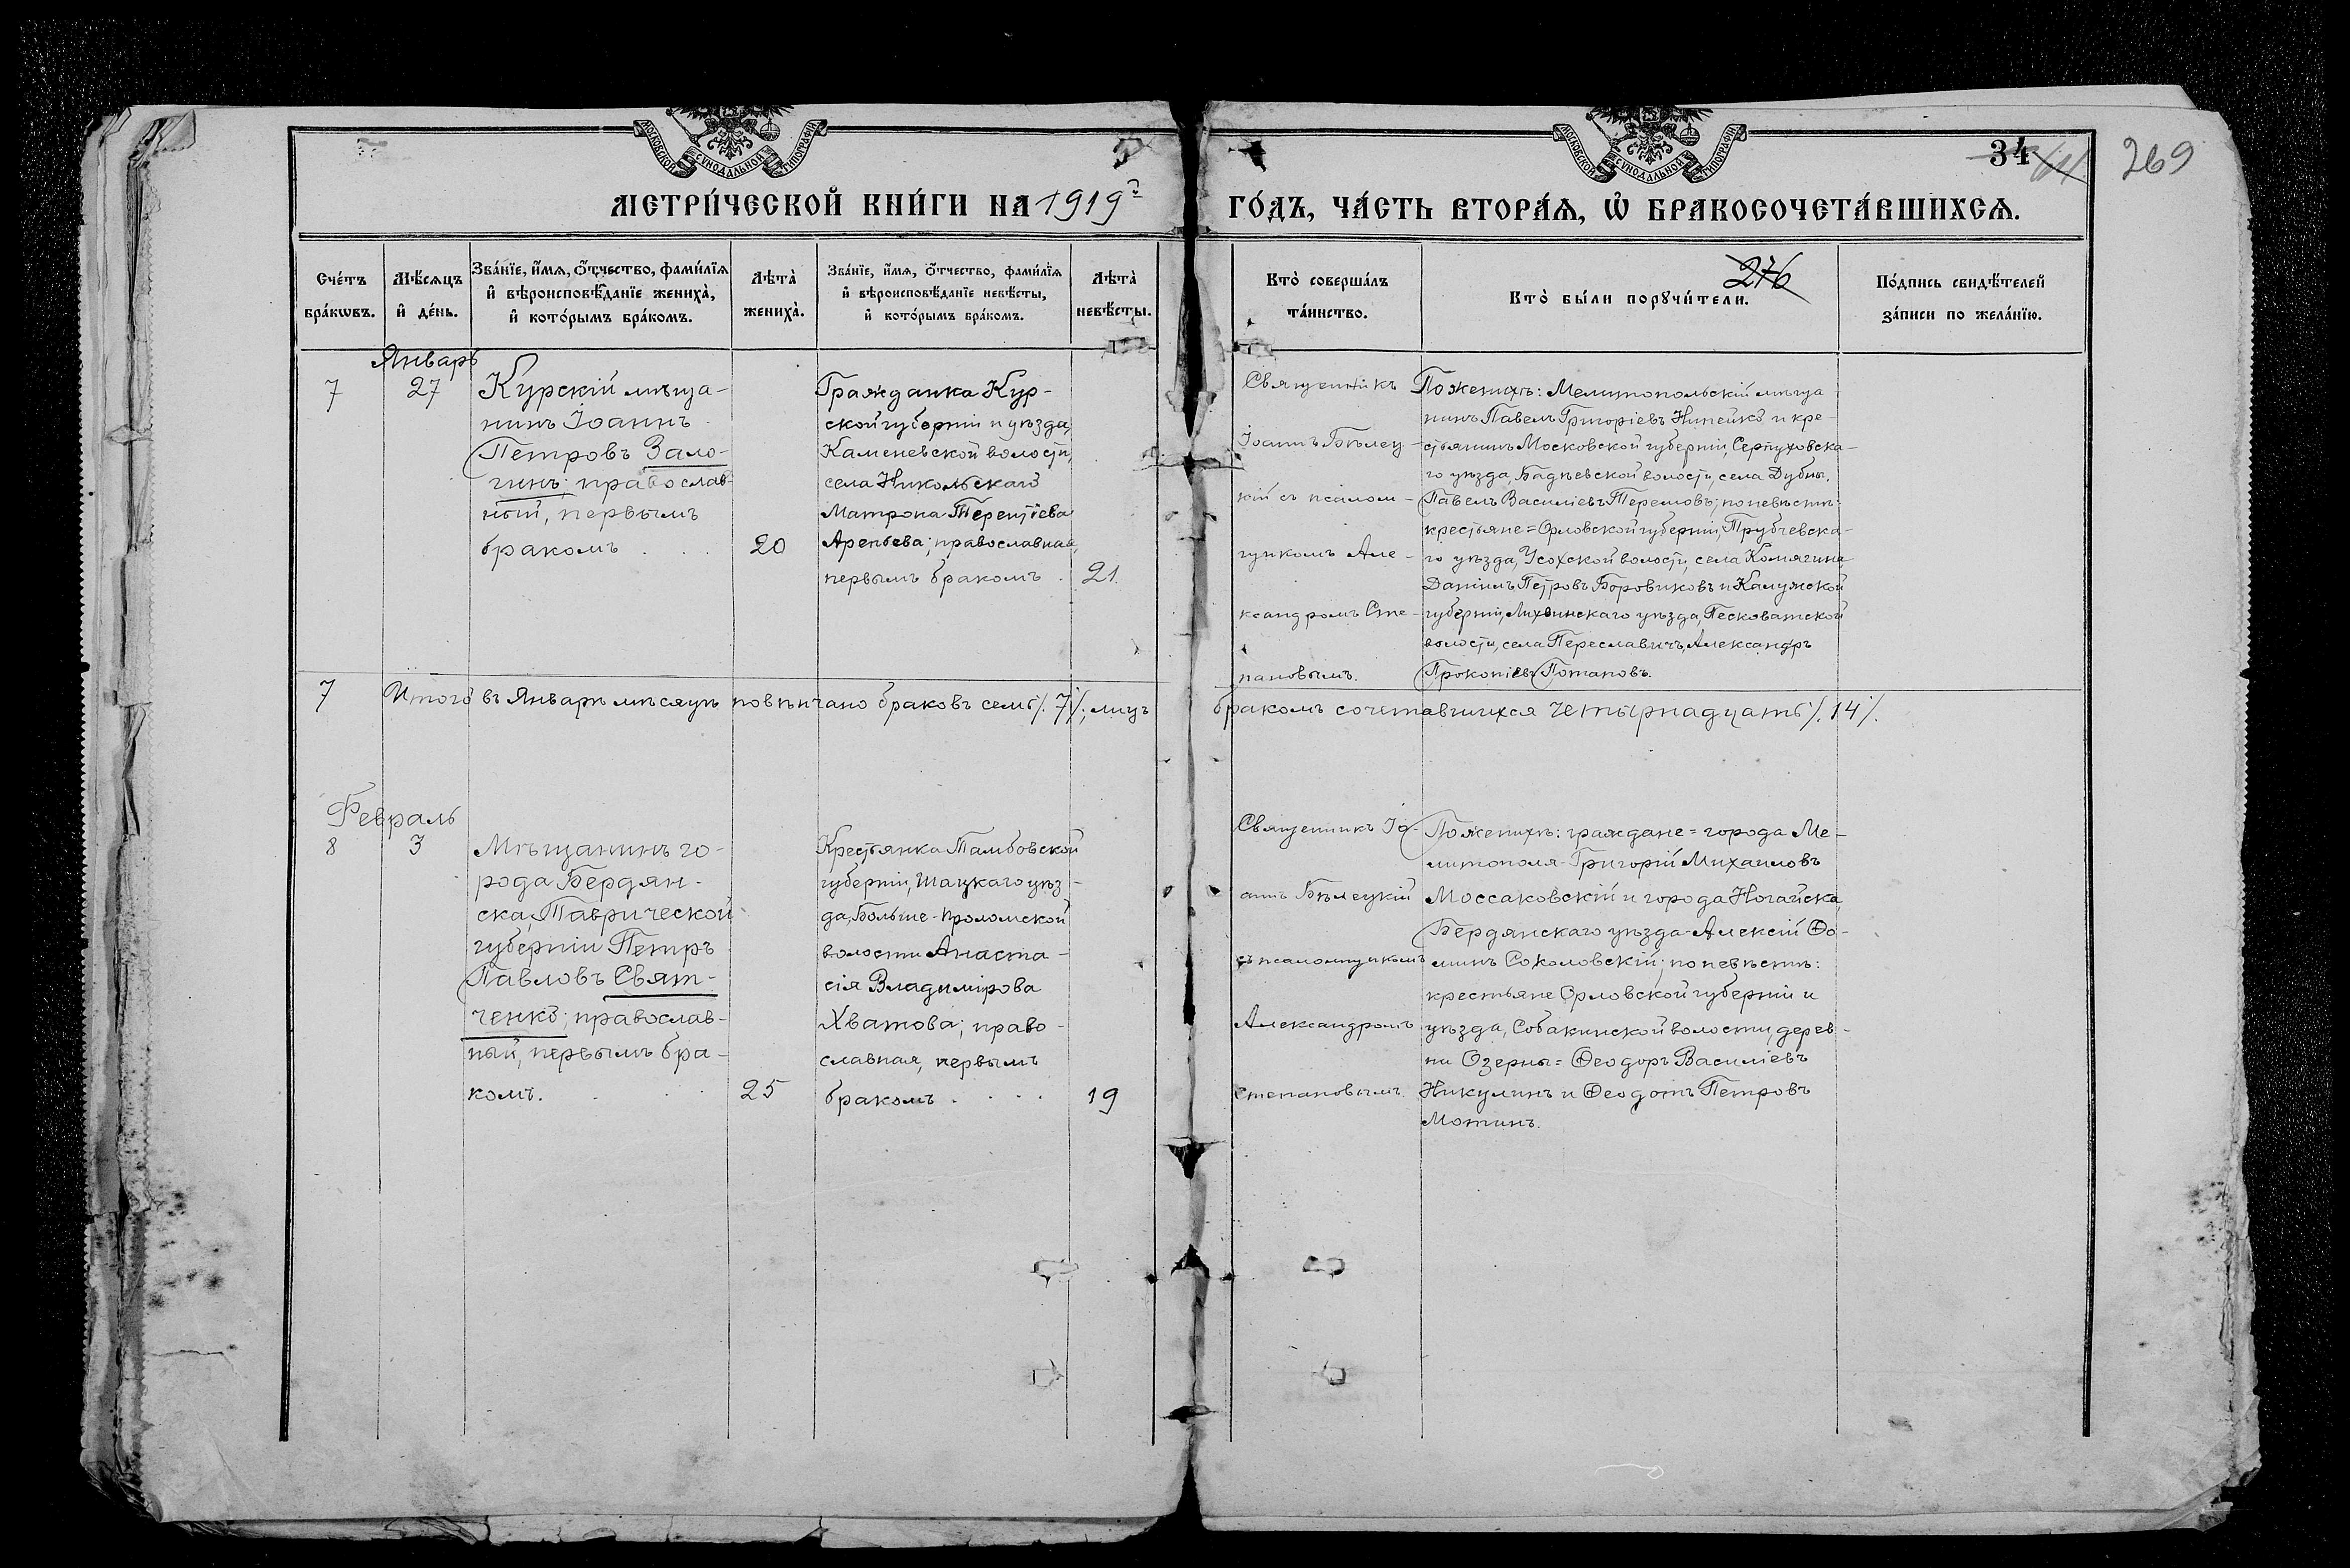 МОСКОВСКОЙ СѴНОДАЛЬНОЙ ТИПОГРАФІИ
МОСКОВСКОЙ СѴНОДАЛЬНОЙ ТИПОГРАФІИ
34
269
МЕТРИ́ЧЕСКОЙ КНИ́ГИ НА 1919 г
ГО́ДЪ, ЧА́СТЬ ВТОРА́Я, Ѡ БРАКОСОЧЕТА́ВШИХСѦ.
Сче́тъ бра́кѡвъ.
Мѣ́сѧцъ и де́нь.
Зва́нїе, и́мѧ, о́тчество, фами́лїѧ и вѣроисповѣ́данїе жениха̀, и кото́рымъ бра́комъ.
Лѣта̀ жениха̀.
Зва́нїе, и́мѧ, о́тчество, фами́лїѧ и вѣроисповѣ́данїе невѣ́сты, и кото́рымъ бра́комъ.
Лѣта̀ невѣ́сты.
Кто̀ соверша́лъ та́инство.
276
Кто̀ бы́ли порꙋчи́тели.
По́дпись свидѣ́телей за́писи по жела́нїю.
Январь
7
27
Курскій мѣща-
нинъ Іоаннъ
Петровъ Зало-
гинъ; православ-
ный, первымъ
бракомъ
20
Гражданка Кур-
ской губерніи и уѣзда,
Каменевской волости,
села Никольскаго
Матрона Терентіева
Арепьева; православная,
первымъ бракомъ
21.
Священникъ
Іоаннъ Бѣлец-
кій съ псалом-
щикомъ Але-
ксандромъ Сте-
пановымъ.
По женихѣ: Мелитопольскій мѣща
нинъ Павелъ Григоріевъ Нипейко и кре-
стьянинъ Московской губерніи, Серпуховска-
го уѣзда, Бадѣевской волости, села Дубны.
Павелъ Василіевъ Теремовъ; по невѣстѣ:
крестьяне = Орловской губерніи, Трубчевска-
го уѣзда, Усохской волости, села Комягина
Даніилъ Петровъ Боровиковъ и Калужской
губерніи, Лихвинскаго уѣзда, Песковатской
волости, села Переславичъ, Александръ
Прокопіевъ Потаповъ.
7
Итого въ Январѣ мѣсяцѣ повѣнчано браковъ семь /. 7 /.; лицъ
бракомъ сочетавшихся четырнадцать /. 14 /.
Февраль
8
3
Мѣщанинъ го-
рода Бердян-
ска, Таврической
губерніи Петръ
Павловъ Свят-
ченко; православ-
ный, первымъ бра-
комъ.
25
Крестьянка Тамбовской
губерніи, Шацкаго уѣз-
да, Больше-Проломской
волости Анаста-
сія Владимірова
Хватова; право-
славная, первымъ
бракомъ
19
Священникъ Іо-
аннъ Бѣлецкій
съ псаломщикомъ
Александромъ
Степановымъ.
По женихѣ: граждане = города Ме-
литополя - Григорій Михаиловъ
Моссаковскій и города Ногайска,
Бердянскаго уѣзда - Алексій Ѳо-
минъ Соколовскій; по невѣстѣ:
крестьяне Орловской губерніи и
уѣзда, Собакинской волости, дерев-
ни Озерны = Ѳеодоръ Василіевъ
Никулинъ и Ѳеодотъ Петровъ
Мотинъ.